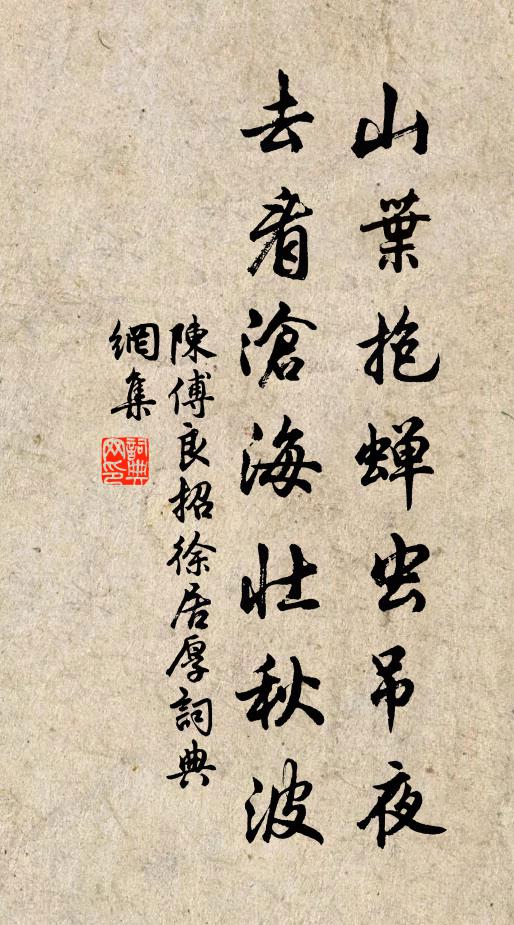 山葉抱蝉虫吊夜
去看滄海壯秋波
陳傅良招徐居厚詞典
網集
詞典
文印